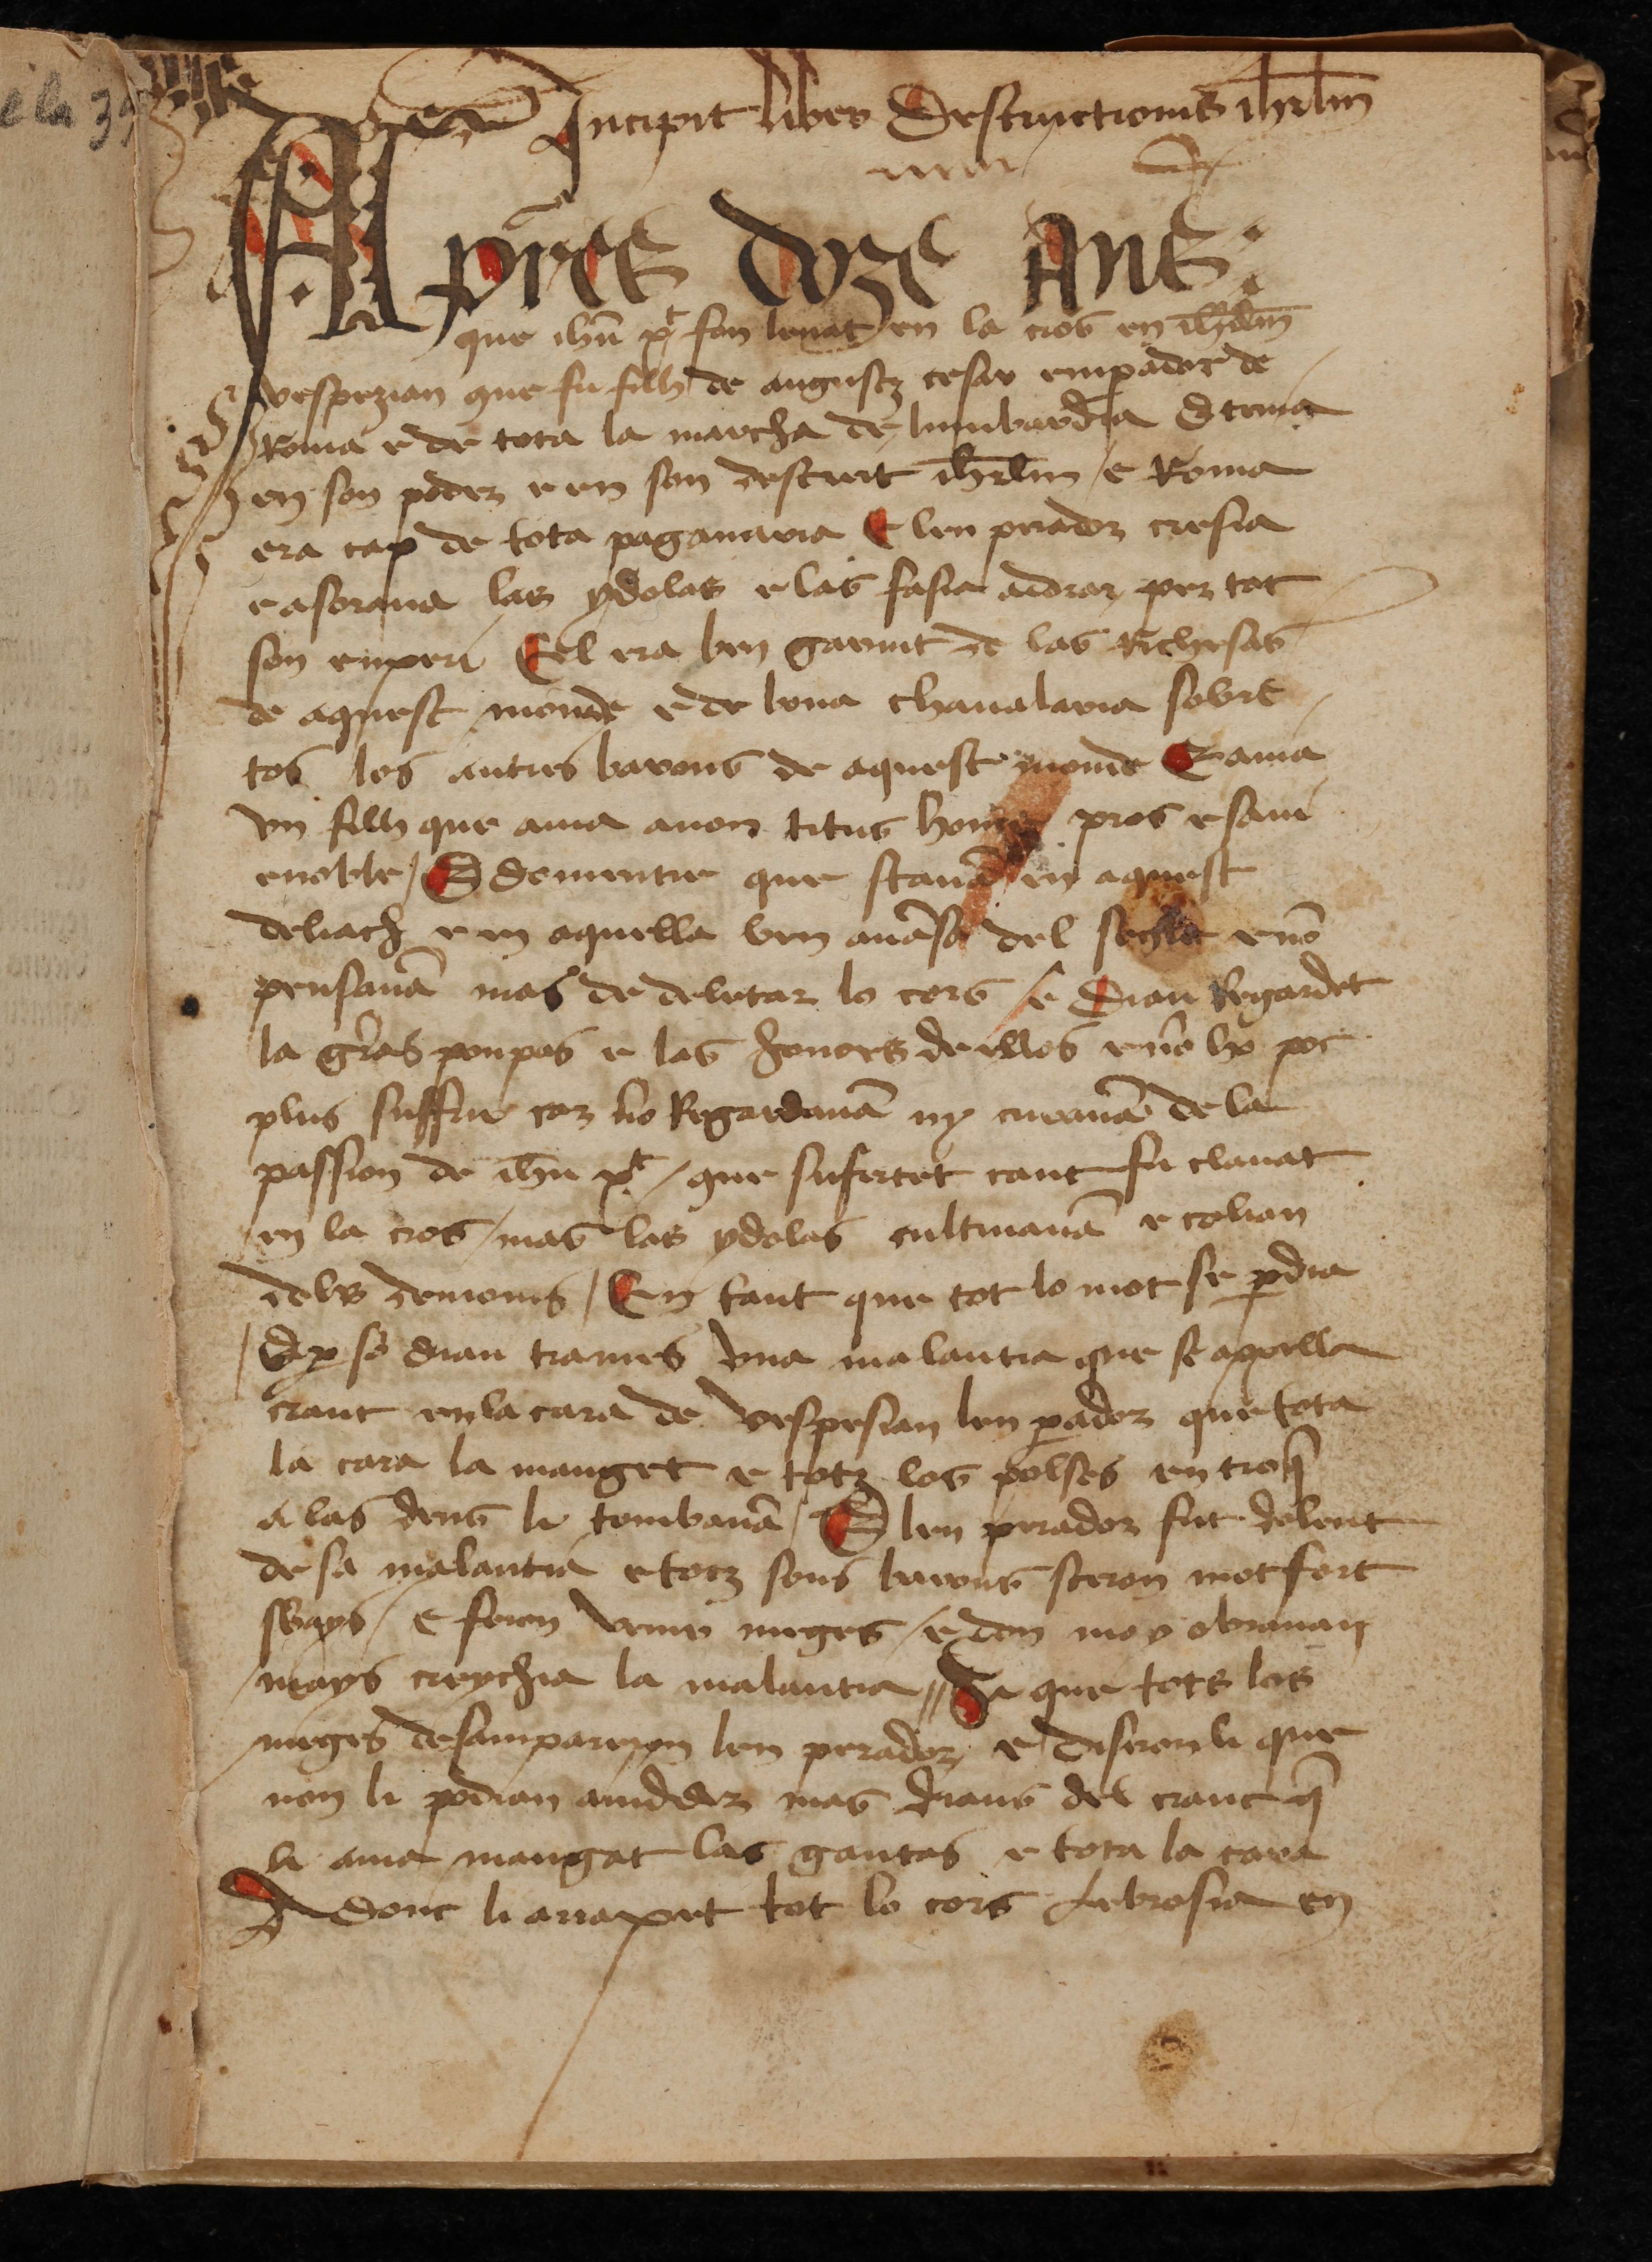 Incipit liber destructionis ihrlm
Apres doze Ans
que ihũ xp̃t fon leuat en la cros en ihrlm
vespezian que fu filh de augustz cesar empador de
Roma e de tota la marcha de lumbardia E tenia
en son poder e en son destreit ihrlm e Roma
era cap de tota paganaria E len perador cresia
e asoraua las ydolas e las fasia adorar per tot
son emperi El era ben garnit de las Richesas
de aquest monde e de bona chaualaria sobre
tos los autres barons de aquest monde E auia
vn filh que auia a nom titus home pros e saui
e noble E dementre que stauã en aquest
deliach e en aquella ben auãsa del segle e nõ
pensauã mas de deletar lo cors e Dieu Regardet
la grãs ponpas e las honors de ellos e nõ ho poc
plus suffrir car nõ Regardauã ny curauã de la
passion de ihũ xp̃t que sufertet cant fu clauat
en la cros mas las ydolas cultiuauã e colian
dels demonis En tant que tot lo mot se pdia
E p so dieu trames vna malautia que se appella
cranc en la cara de vespesian len pador que tota
la cara la manget e totz los polses en troq̃
a las dens li tombauã E len perador fut dolent
de sa malautia e totz sons barons steron mot fort
 E feron venir meges e don mays obrauan
mays creychia la malautia Ia que tots los
meges desampareron len perador e diseron li que
non li podian aiuder mas dieus del cranc q̃
li auia mangat las gautas e tota la cara
Adonc li arapet tot lo cors lebrosia en